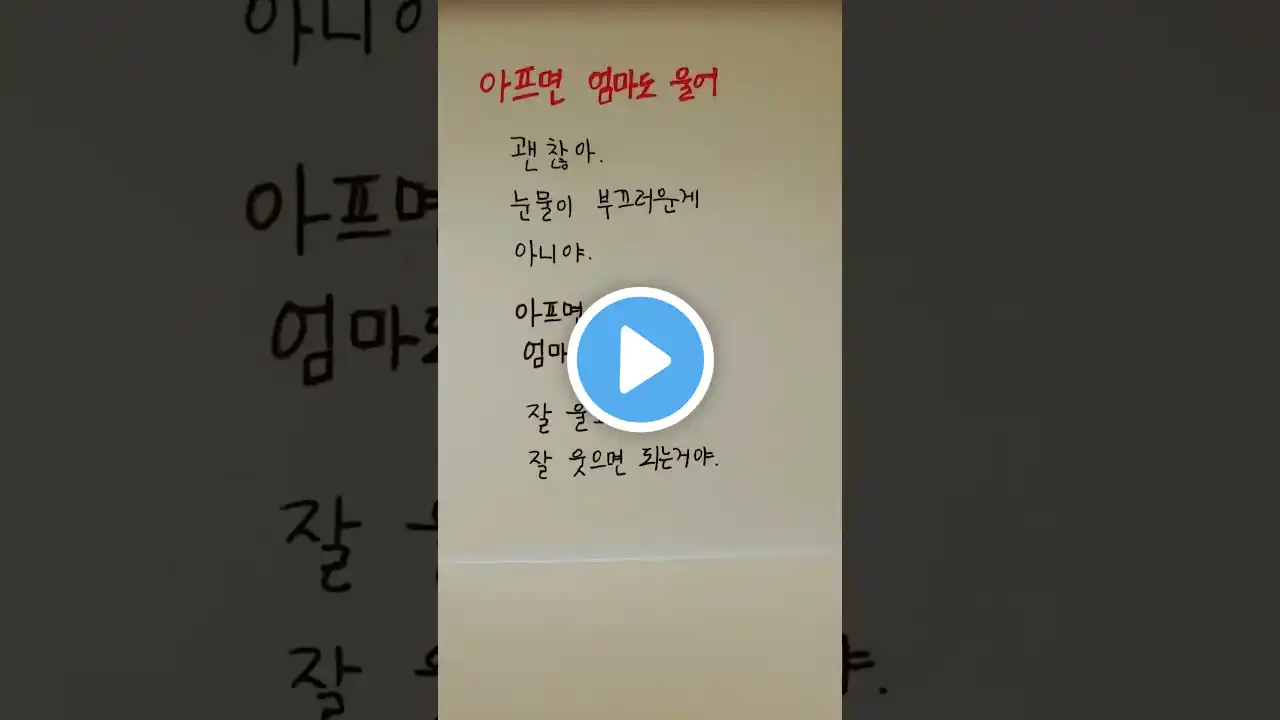 아프면 엄마도 울어
괜찮아.
눈물이 부끄러운게
아니야.
아프면
엄마
잘
잘 웃으면 되는거야.